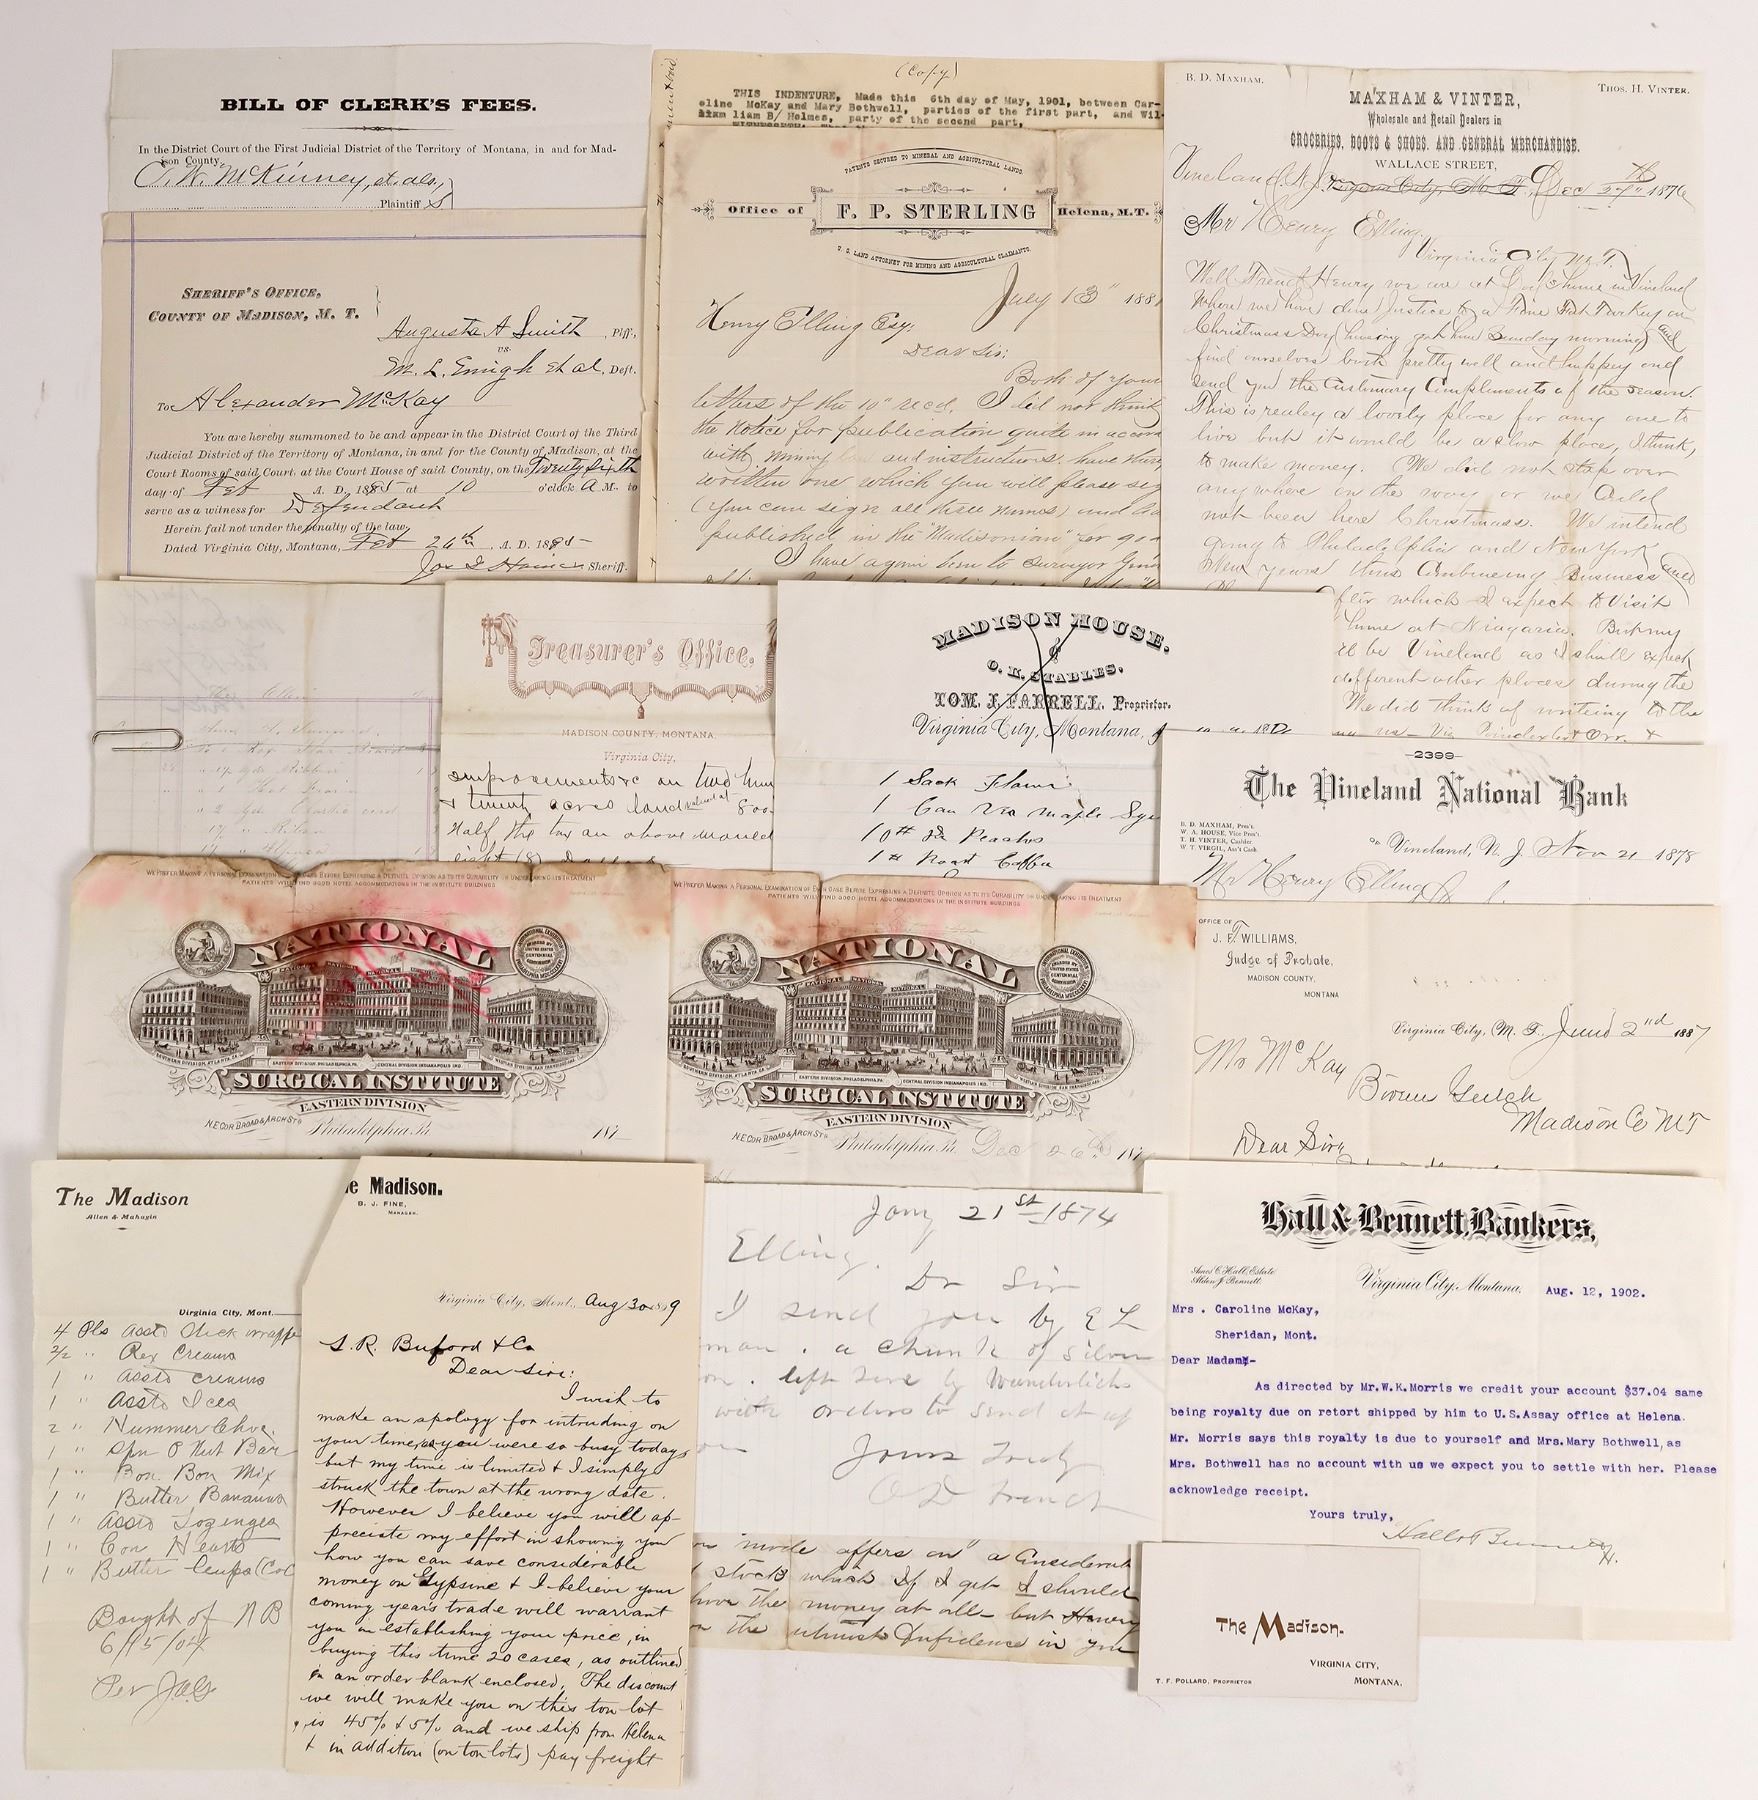 BILL OF CLERK'S FEES.
In the District Court of the First Judicial District of the Territory of Montana, in and for Mad-
ison County.
McKinney, et. als.,
Plaintiff S
SHERIFF'S OFFICE,
COUNTY OF MADISON, M. T.
Augusta A Smith , Plff.,
vs.
M. L. Emigh et al , Deft.
To Alexander McKay
You are hereby summoned to be and appear in the District Court of the Third
Judicial District of the Territory of Montana, in and for the County of Madison, at the
Court Rooms of said Court, at the Court House of said County, on the Twenty Sixth
day of Feb A. D. 1885 at 10 o'clock A M. to
serve as a witness for Defendant
Herein fail not under the penalty of the law.
Dated Virginia City, Montana, Feb 26th , A. D. 1885
Sheriff.
(Copy)
THIS INDENTURE, Made this 6th day of May, 1901, between Car-
oline McKay and Mary Bothwell, parties of the first part, and Wil-
liam B/ Holmes, party of the second part,
PATENTS SECURED TO MINERAL AND AGRICULTURAL LANDS.
Office of F. P. STERLING Helena, M. T.
U. S. LAND ATTORNEY FOR MINING AND AGRICULTURAL CLAIMANTS.
July 13" 188
Henry Elling Esq.
Dear Sir:
Both of your
letters of the 10" recd. I did not think
the notice for publication quite in accor
with mining law and instructions. have
written one which you will please sig
(you can sign all three names) and
published in the "Madisonian" for 90
I have again been to surveyor
B. D. MAXHAM.
THOS. H. VINTER.
MAXHAM & VINTER,
Wholesale and Retail Dealers in
GROCERIES, BOOTS & SHOES, AND GENERAL MERCHANDISE.
WALLACE STREET,
Vineland N. J. Virginia City, M. T., Dec 27th 1876
Mr Henry Elling.
Virginia City M.T.
Well Friend Henry we are at in Vineland
Where we have done Justice to a Fine Fat Turkey on
Christmass Day (having got here Sunday morning) and
find ourselves both pretty well and happy and
send you the Customary Compliments of the season.
This is realey a lovely place for any one to
live but it would be a slow place, I think,
to make money. We did not stop over
anywhere on the way or we Could
not been here Christmass. We intend
going to Philadelphia and New York
New Years thus Combineing Business and
after which I expect to Visit
home at Niagaria. But my
will be Vineland as I shall expect
different other places during the
We did think of writeing to the
Treasurer's Office,
MADISON COUNTY, MONTANA,
Virginia City,
improvements &c on two hun
& twenty acres land valued at 800
Half the tax on above
eight (8) Dollars
MADISON HOUSE.
&
O. K. STABLES.
TOM. J. FARRELL, Proprietor.
Virginia City, Montana,
1 Sack Flour
1 Can Maple Sy
10# Peaches
1# Roast Coffee
2399
The Vineland National Bank
B. D. MAXHAM, Pres't.
W. A. HOUSE, Vice Pres't.
T. H. VINTER, Cashier
W. T. VIRGIL, Ass't Cash
Vineland, N. J. Nov 21 1878
Mr Henry Elling
WE PREFER MAKING A PERSONAL EXAMINATION OF EACH CASE BEFORE EXPRESSING A DEFINITE OPINION AS TO ITS CURABILITY OR UNDERTAKING ITS TREATMENT
PATIENTS WILL FIND GOOD HOTEL ACCOMMODATIONS IN THE INSTITUTE BUILDINGS
NATIONAL
SURGICAL INSTITUTE
EASTERN DIVISION
N.E. COR BROAD & ARCH STS
Philadelphia Pa
187
WE PREFER MAKING A PERSONAL EXAMINATION OF EACH CASE BEFORE EXPRESSING A DEFINITE OPINION AS TO ITS CURABILITY OR UNDERTAKING ITS TREATMENT
PATIENTS WILL FIND GOOD HOTEL ACCOMMODATIONS IN THE INSTITUTE BUILDINGS
NATIONAL
EASTERN DIVISION, PHILADELPHIA, PA. CENTRAL DIVISION INDIANAPOLIS IND.
SURGICAL INSTITUTE
EASTERN DIVISION
N.E. COR BROAD & ARCH STS
Philadelphia Pa. Dec 26th 187
OFFICE OF
J. F. WILLIAMS,
Judge of Probate,
MADISON COUNTY,
MONTANA
Virginia City, M. T. June 2nd 1887
Mr McKay
Gulch
Madison Co MT
Dear Sir
The Madison
Allen & Mahagin
Virginia City, Mont.
4 Pls Asstd Chick
2/2 " Rex Creams
1 " Asstd Creams
1 " Asstd Ices
2 " Nummer Choc.
1 " Spn P Nut Bar
1 " Bon Bon Mix
1 " Butter Bananas
1 " Asstd Lozenges
1 " Con Hearts
1 " Butter Cups
Bought of N B
6/15/04
Per
e Madison.
B. J. FINE,
MANAGER.
Virginia City, Mont., Aug 30 1899
S. R. Buford & Co
Dear Sirs:
I wish to
make an apology for intruding on
your time, as you were so busy today,
but my time is limited & I simply
struck the town at the wrong date.
However I believe you will ap-
preciate my effort in showing you
how you can save considerable
money on Gypsine & I believe your
coming years trade will warrant
you in establishing your price, in
buying this time 20 cases, as outlined
in an order blank enclosed. The discount
we will make you on this ton lot
is 45% & 5% and we ship from Helena
& in addition (on ton lots) pay freight
Jany 21st 1874
Elling.
Dr Sir
I send you by E L
man. a chunk of silver
on. left here by Wunderlichs
with orders to send it up
Yours Truly
O D French
made offers on a Considerab
stock which if I get I should
have the money at all— but Henry
the utmost Confidence in you
Hall & Bennett, Bankers,
Amos C. Hall, Estate
Alden J. Bennett.
Virginia City, Montana, Aug. 12, 1902.
Mrs. Caroline McKay,
Sheridan, Mont.
Dear Madam:-
As directed by Mr.W.K.Morris we credit your account $37.04 same
being royalty due on retort shipped by him to U.S.Assay office at Helena.
Mr. Morris says this royalty is due to yourself and Mrs.Mary Bothwell, as
Mrs. Bothwell has no account with us we expect you to settle with her. Please
acknowledge receipt.
Yours truly,
Hall & Bennett
The Madison.
VIRGINIA CITY,
T. F. POLLARD, PROPRIETOR MONTANA.